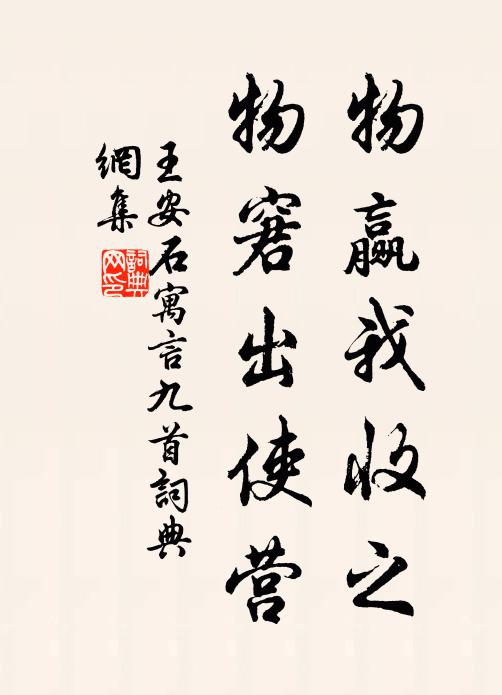 物赢我收之
物窘出使营
王安石寓言九首詞典
網集
詞典
网印